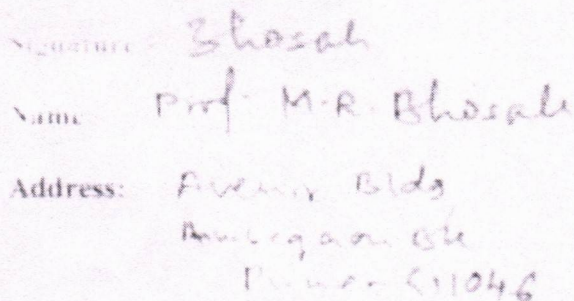 Signature Bhosale
Name Prof. M.R. Bhosale
Address: Avenir Bldg
Ambegaon Bk
Pune - 411046